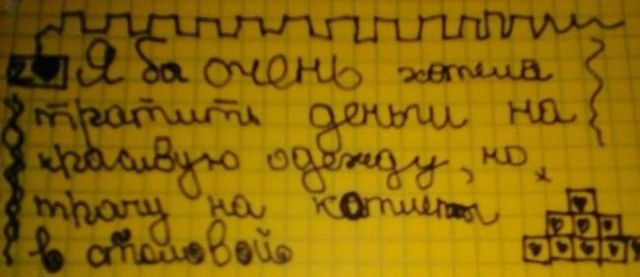 Я ба очень хотела
тратить деньги на
красивую одежду, но
трачу на котлеты
в столовой